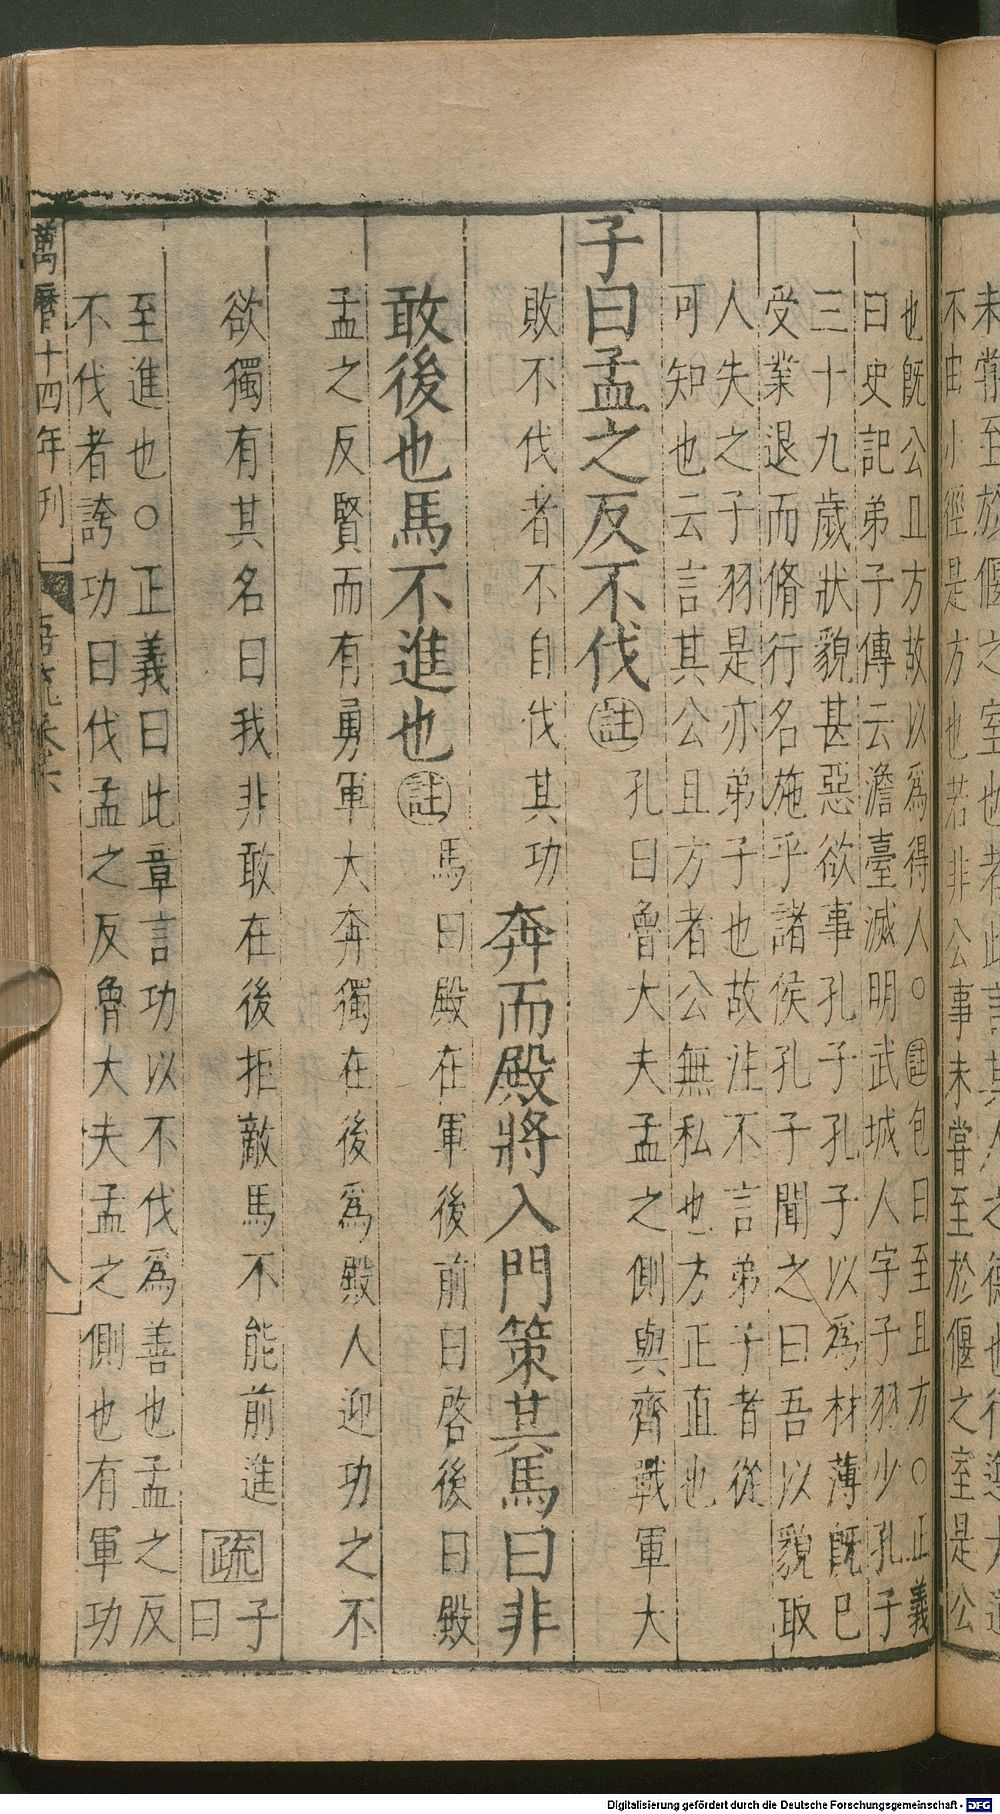 未嘗至於偃之室也者此言其人之德也行遵大道
不由小徑是方也若非公事未嘗至於偃之室是公
也旣公且方故以爲得人○註包曰至且方○正義
曰史記弟子傳云澹臺滅明武城人字子羽少孔子
三十九歲狀貌甚惡欲事孔子孔子以爲材薄旣已
受業退而脩行名施乎諸侯孔子聞之曰吾以貌取
人失之子羽是亦弟子也故注不言弟子者從
可知也云言其公且方者公無私也方正直也
子曰孟之反不伐註孔曰魯大夫孟之側與齊戰軍大
敗不伐者不自伐其功奔而殿將入門策其馬曰非
敢後也馬不進也註馬曰殿在軍後前曰啓後曰殿
孟之反賢而有勇軍大奔獨在後爲殿人迎功之不
欲獨有其名曰我非敢在後拒敵馬不能前進疏子曰
至進也○正義曰此章言功以不伐爲善也孟之反
不伐者誇功曰伐孟之反魯大夫孟之側也有軍功
萬曆十四年刊 卷六 八
Digitalisierung gefördert durch die Deutsche Forschungsgemeinschaft - DFG